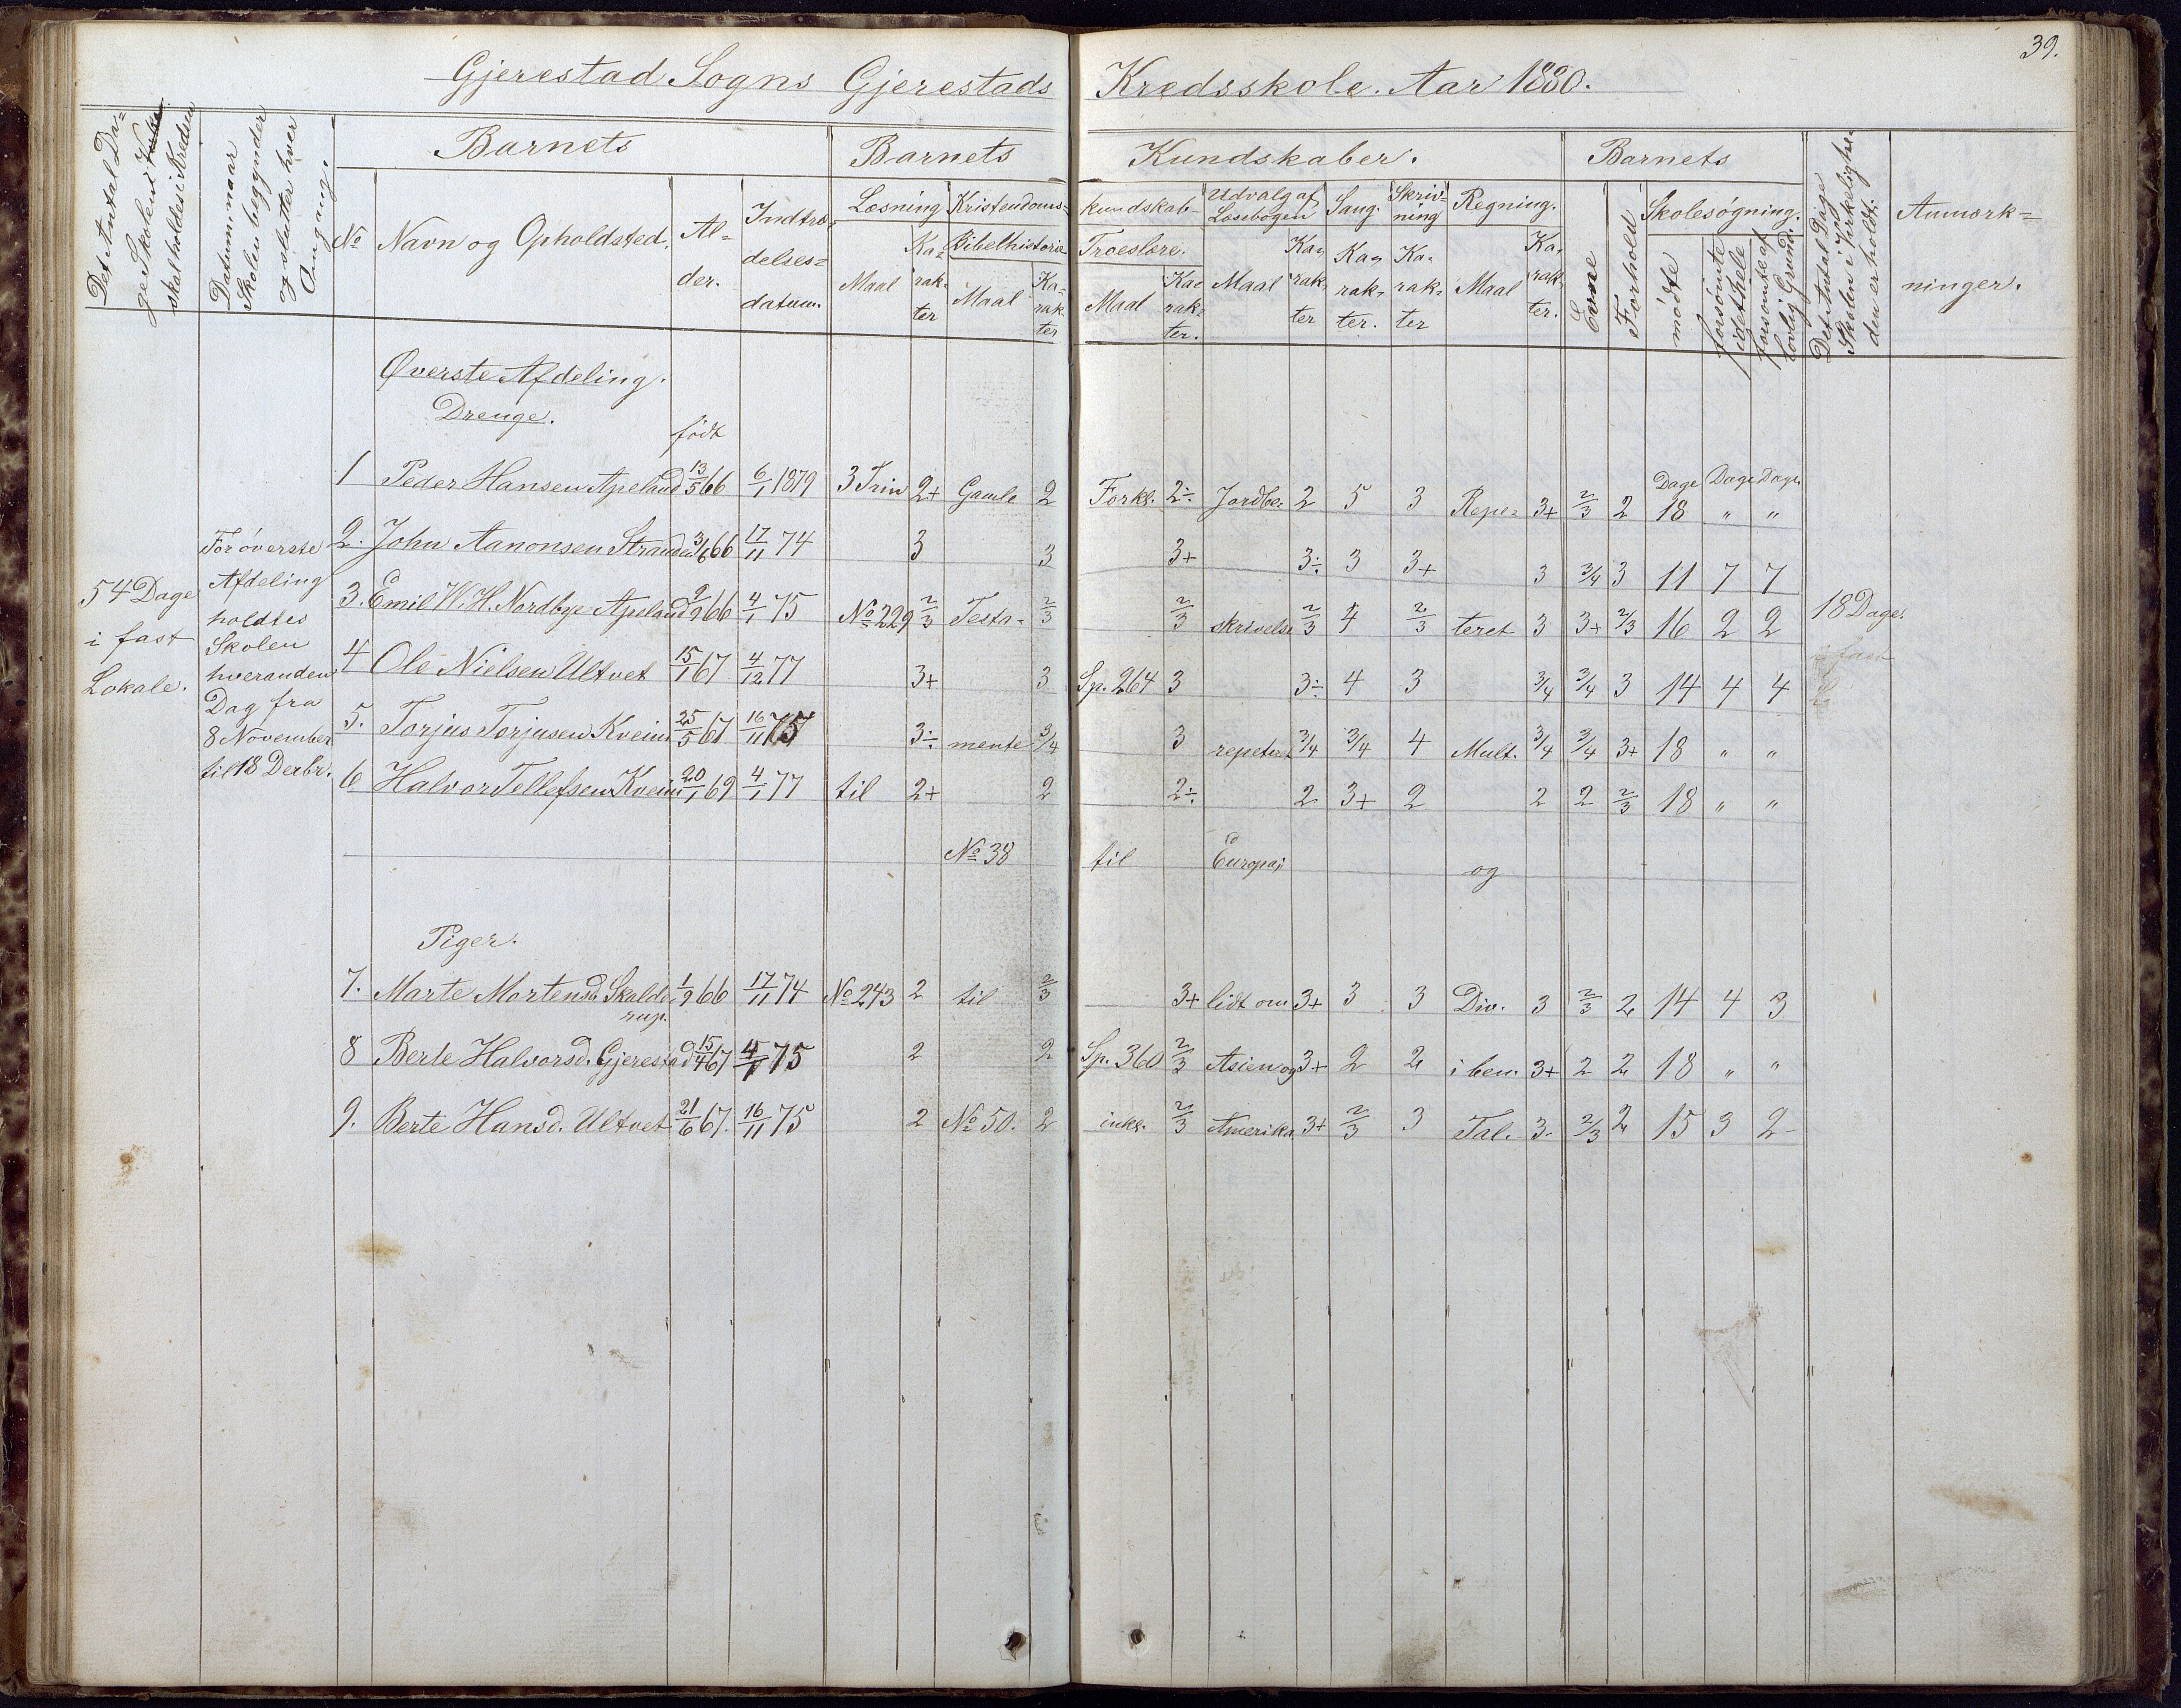 39.
Gjerestad Sogns Gjerestads Kredsskole. Aar 1880.
Det Antal Da=
ge Skolen i
skal holdes i Kredsen
Datum, naar
Skolen begynder
og slutter hver
Omgang.
Barnets
No
Navn og Opholdsted.
Al=
der.
Indtræ=
delses=
datum.
Barnets Kundskaber.
Læsning
Maal
Ka=
rak=
ter
Kristendoms=kundskab
Bibelhistorie
Maal
Ka=
rak=
ter
Troeslære.
Maal
Ka=
rak=
ter.
Udvalg af
Læsebogen
Maal
Ka=
rak=
ter
Sang.
Ka=
rak=
ter.
Skriv=
ning
Ka=
rak=
ter
Regning.
Maal
Ka=
rak=
ter.
Barnets
Evne
Forhold
Skolesøgning.
mødte
forsømte
idethele
forsømte af
lovlig Grund.
Det Antal Dage
Skolen i Virkelighe=
den er holdt.
Anmærk=
ninger.
54 Dage
i fast
Lokale.
For øverste
Afdeling
holdtes
Skolen
hveranden
Dag fra
8 November
til 18 Decbr.
Øverste Afdeling.
Drenge.
født
Dage Dage Dage
1 Peder Hansen Apeland 13/5 66 6/1 1879 3 Trin 2+ Gamle 2 Forkl. 2÷ Jordbe= 2 5 3 Repe= 3+ 2/3 2 18 " "
2. John Aanonsen Stranden 3/6 66 17/11 74 3 3 3+ 3÷ 3 3+ 3 3/4 3 11 7 7
3. Emil W. H. Nordbye Apeland 9/9 66 4/1 75 No 229 2/3 Testa= 2/3 2/3 skrivelse 2/3 4 2/3 teret 3 3+ 2/3 16 2 2 18 Dage
4 Ole Nielsen Ultvet 15/1 67 4/12 77 3+ 3 Sp. 264 3 3÷ 4 3 3/4 3/4 3 14 4 4
5. Torjus Torjusen Kveim 25/5 67 16/11 75 3÷ mente 3/4 3 repeteret 3/4 3/4 4 Mult. 3/4 3/4 3+ 18 " "
6 Halvor Tellefsen Kveim 20/1 69 4/1 77 til 2+ 2 2÷ 2 3+ 2 2 2 2/3 18 " "
No 38 til Europa; og
Piger.
7. Marte Mortensd. Skalde=
rup. 1/9 66 17/11 74 No 243 2 til 2/3 3+ lidt om 3+ 3 3 Div. 3 2/3 2 14 4 3
8 Berte Halvorsd. Gjerestad 15/4 67 4/1 75 2 2 Sp. 360 2/3 Asien og 3+ 2 2 i ben. 3+ 2 2 18 " "
9. Berte Hansd. Ultvet 21/6 67. 16/11 75 2 No 50. 2 inkl. 2/3 Amerika 3+ 2/3 3 Tal. 3- 2/3 2 15 3 2